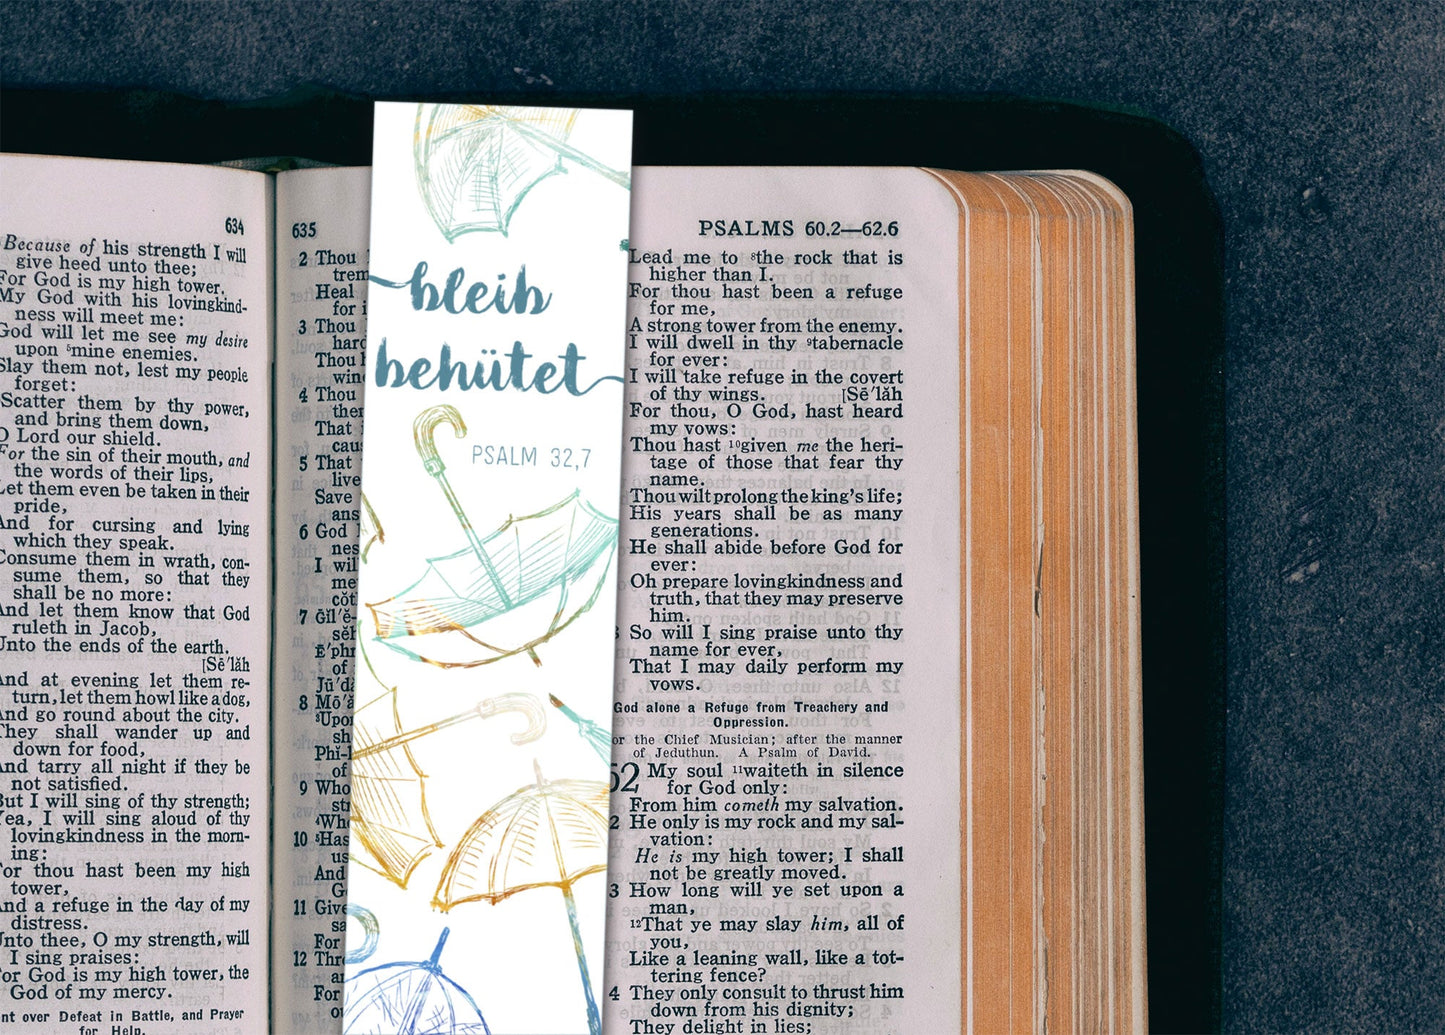 634
Because of his strength I will
give heed unto thee;
For God is my high tower.
My God with his lovingkind-
ness will meet me:
God will let me see my desire
upon ⁵mine enemies.
Slay them not, lest my people
forget:
Scatter them by thy power,
and bring them down,
O Lord our shield.
For the sin of their mouth, and
the words of their lips,
Let them even be taken in their
pride,
And for cursing and lying
which they speak.
Consume them in wrath, con-
sume them, so that they
shall be no more:
And let them know that God
ruleth in Jacob,
Unto the ends of the earth.
[Sē′lăh
And at evening let them re-
turn, let them howl like a dog,
And go round about the city.
They shall wander up and
down for food,
And tarry all night if they be
not satisfied.
But I will sing of thy strength;
Yea, I will sing aloud of thy
lovingkindness in the morn-
ing:
For thou hast been my high
tower,
And a refuge in the day of my
distress.
Unto thee, O my strength, will
I sing praises:
For God is my high tower, the
God of my mercy.
over Defeat in Battle, and Prayer
for Help.
635
2 Thou
Heal
3 Thou
Thou
4 Thou
That
5 That
Save
6 God
I
7
of
8
9 Who
10
And
11 Give
For
12
For
bleib
behütet
PSALM 32,7
PSALMS 60.2—62.6
Lead me to ⁸the rock that is
higher than I.
For thou hast been a refuge
for me,
A strong tower from the enemy.
I will dwell in thy ⁹tabernacle
for ever:
I will take refuge in the covert
of thy wings. [Sē′lăh
For thou, O God, hast heard
my vows:
Thou hast ¹⁰given me the heri-
tage of those that fear thy
name.
Thou wilt prolong the king's life;
His years shall be as many
generations.
He shall abide before God for
ever:
Oh prepare lovingkindness and
truth, that they may preserve
him.
So will I sing praise unto thy
name for ever,
That I may daily perform my
vows.
God alone a Refuge from Treachery and
Oppression.
the Chief Musician; after the manner
of Jeduthun. A Psalm of David.
62 My soul ¹¹waiteth in silence
for God only:
From him cometh my salvation.
2 He only is my rock and my sal-
vation:
He is my high tower; I shall
not be greatly moved.
3 How long will ye set upon a
man,
¹²That ye may slay him, all of
you,
Like a leaning wall, like a tot-
tering fence?
4 They only consult to thrust him
down from his dignity;
They delight in lies;